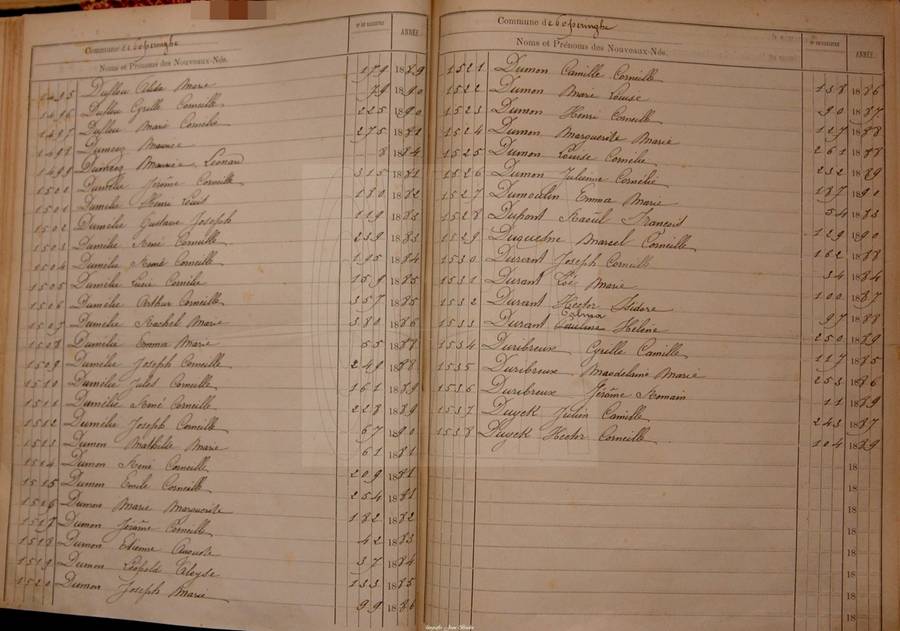 Commune de Poperinghe
Nº DU REGISTRE
ANNÉE
Noms et Prénoms des Nouveaux-Nés.
1495 Dufleu Alida Marie 179 1889
1496 Dufleu Cyrille Corneille 79 1890
1497 Dufleu Marie Cornélie 225 1890
1498 Dumeez Maurice 275 1881
1499 Dumeez Maurice Léonard 8 1884
1500 Dumelie Jérôme Corneille 315 1881
1501 Dumelie Henri Louis 180 1882
1502 Dumelie Gustave Joseph 119 1883
1503 Dumelie René Corneille 239 1883
1504 Dumelie René Corneille 195 1884
1505 Dumelie Lucie Cornélie 159 1885
1506 Dumelie Arthur Corneille 357 1885
1507 Dumelie Rachel Marie 380 1886
1508 Dumelie Emma Marie 55 1888
1509 Dumelie Joseph Corneille 249 1888
1510 Dumelie Jules Corneille 161 1889
1511 Dumelie René Corneille 228 1889
1512 Dumelie Joseph Corneille 67 1890
1513 Dumon Mathilde Marie 61 1881
1514 Dumon René Corneille 209 1881
1515 Dumon Emile Corneille 254 1881
1516 Dumon Marie Marguerite 182 1882
1517 Dumon Jérôme Corneille 42 1883
1518 Dumon Etienne Auguste 37 1884
1519 Dumon Léopold Aloyse 133 1885
1520 Dumon Joseph Marie 99 1886
Commune de Poperinghe
Nº DU REGISTRE
ANNÉE
Noms et Prénoms des Nouveaux-Nés.
1521 Dumon Camille Corneille 138 1886
1522 Dumon Marie Louise 90 1887
1523 Dumon Henri Corneille 127 1888
1524 Dumon Marguerite Marie 261 1888
1525 Dumon Louise Cornélie 232 1889
1526 Dumon Julienne Cornélie 187 1890
1527 Dumoulin Emma Marie 54 1883
1528 Dupont Raoül François 129 1890
1529 Duquesne Marcel Corneille 162 1888
1530 Durant Joseph Corneille 34 1884
1531 Durant Zoé Marie 100 1887
1532 Durant Hector Isidore 97 1888
1533 Durant Pauline Helène 250 1889
1534 Duribreux Cyrille Camille 117 1885
1535 Duribreux Magdelaine Marie 253 1886
1536 Duribreux Jérôme Romain 11 1889
1537 Duyck Julien Camille 243 1887
1538 Duyck Hector Corneille 104 1889
18
18
18
18
18
18
18
18